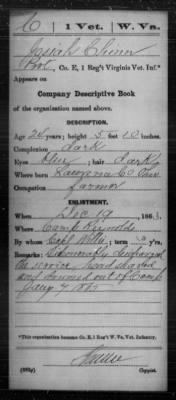 C | 1 Vet. | W. Va.
Josiah
Pvt., Co. E, 1 Reg't Virginia Vet. Inf.*
Appears on
Company Descriptive Book
of the organization named above.
DESCRIPTION.
Age 24 years; height 5 feet 10 inches.
Complexion dark
Eyes blue; hair dark
Where born Co Ohio
Occupation Farmer
ENLISTMENT.
When Dec 19, 1863.
Where Camp Reynolds
By whom Capt ; term 3 y'rs.
Remarks: Dishonorably discharged
the service head shaved
and drumed out of Camp
Jany 7 1865
*This organization became Co. E, 1 Reg't W. Va. Vet. Infantry.
Copyist.